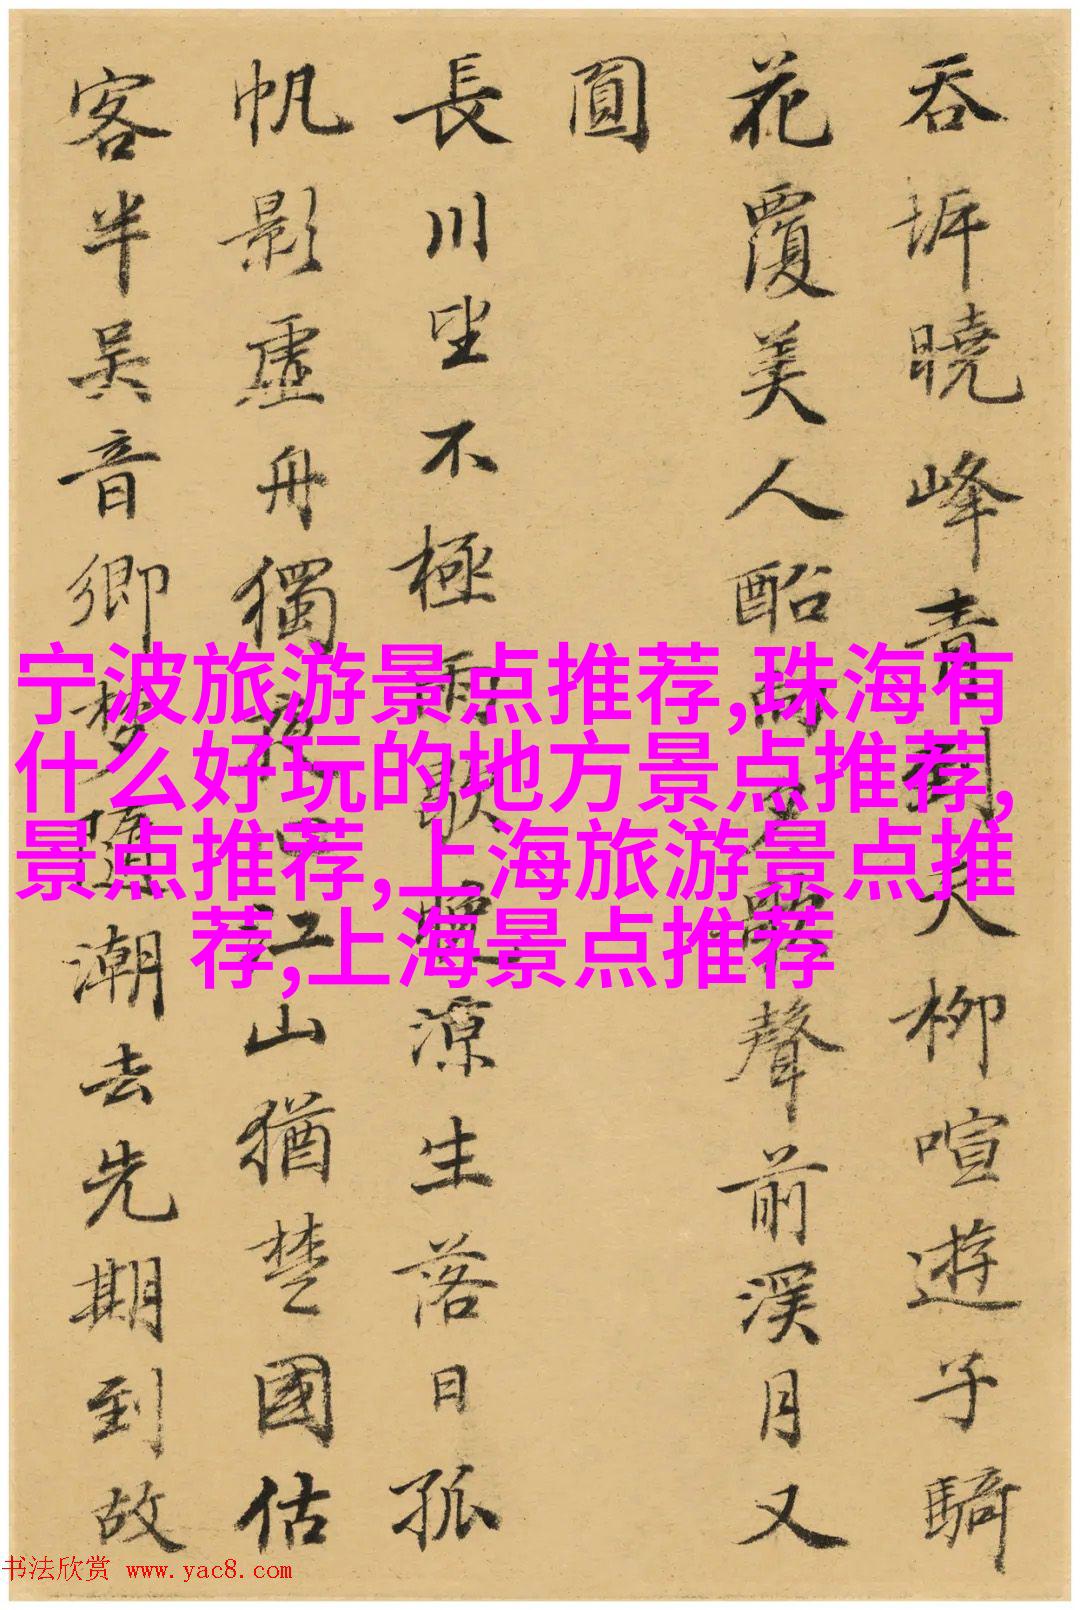 吞坼曉峰青開天柳喧遊子騎
花覆美人酩雨聲前溪月又
圓
長川坐不極雨歇覺源生落日孤
帆影虛舟獨夜心江山猶楚國估
客半吳音鄉夢隨潮去先期到故
宁波旅游景点推荐,珠海有
什么好玩的地方景点推荐,
景点推荐,上海旅游景点推
荐,上海景点推荐
书法欣赏 www.yac8.com